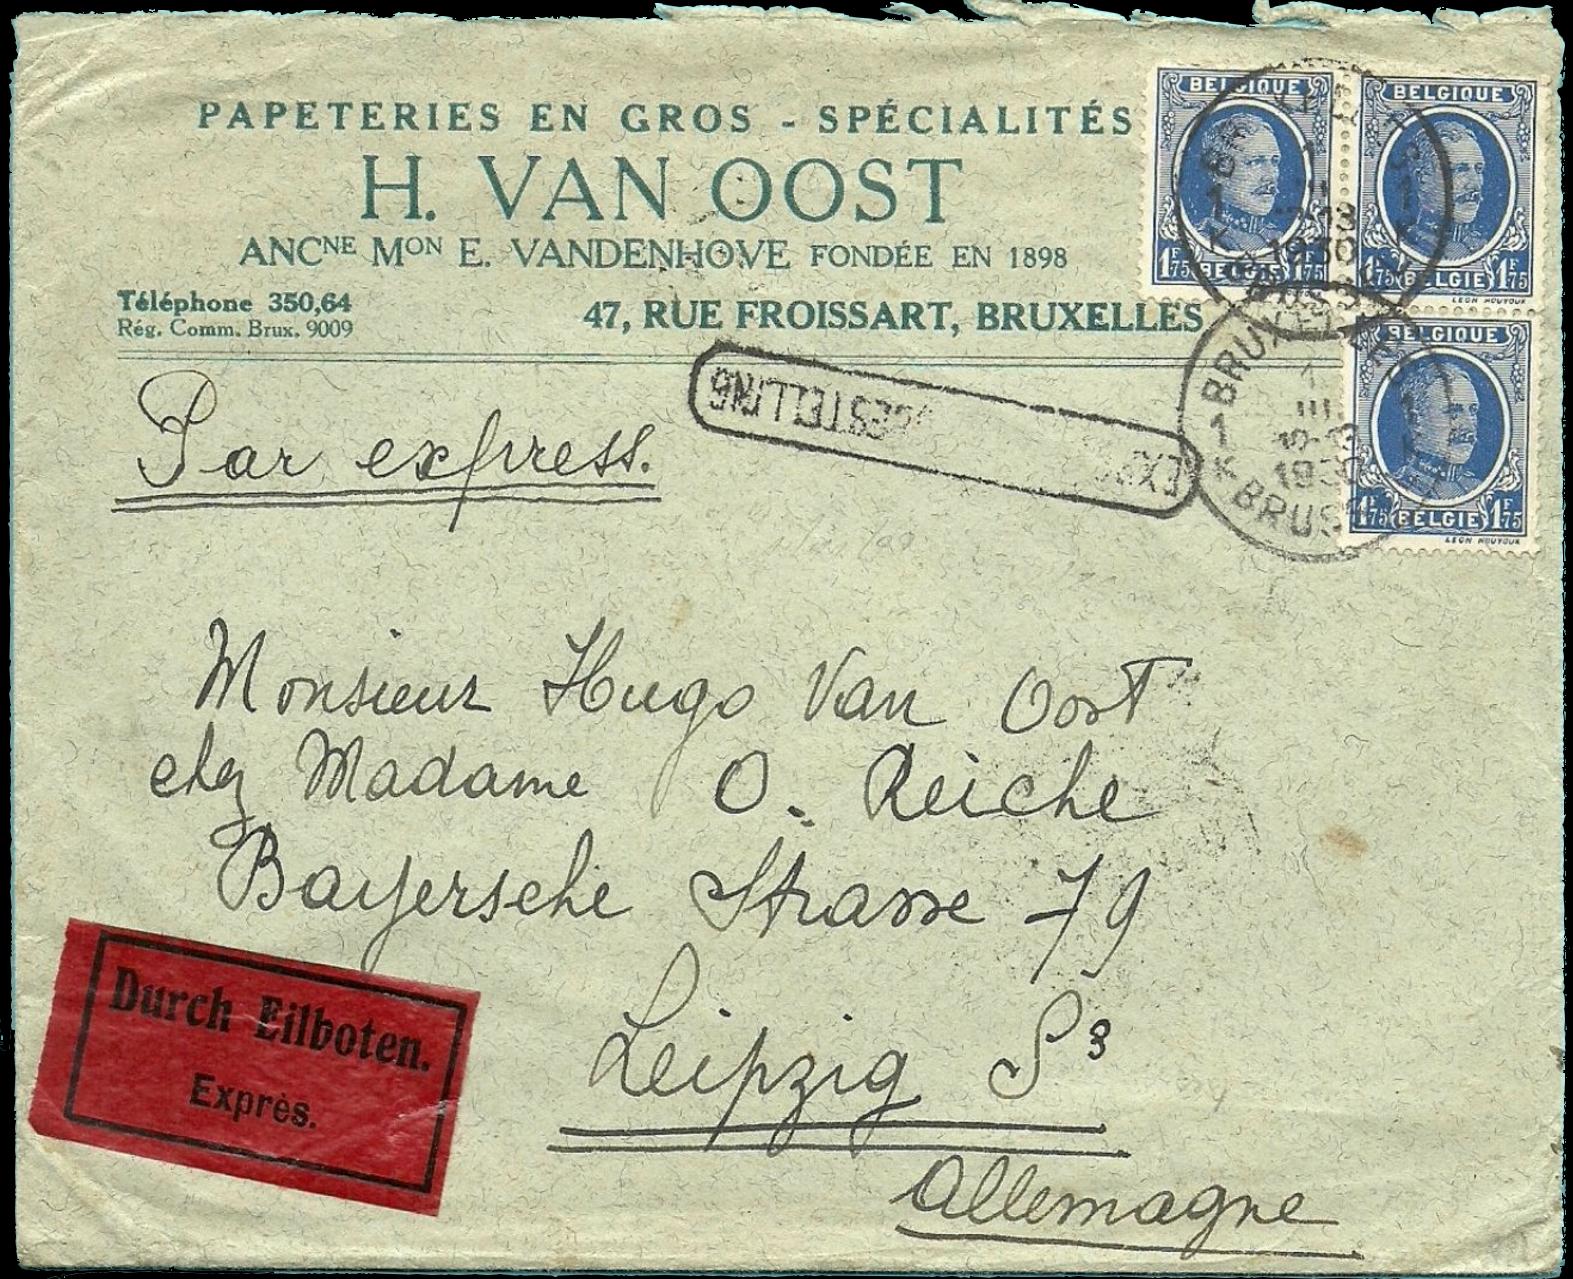 PAPETERIES EN GROS - SPÉCIALITÉS
H. VAN OOST
ANCNE MON E. VANDENHOVE FONDÉE EN 1898
Téléphone 350,64
Rég. Comm. Brux. 9009
47, RUE FROISSART, BRUXELLES
BELGIQUE
1F75 BELGIË 1F75
BELGIQUE
1F75 BELGIË 1F75
LEON HOUYOUX
BELGIQUE
1F75 BELGIË 1F75
LEON HOUYOUX
1 1
1930
BRUXELLES
1 1
III
1930
K BRUSSEL
Par express.
Monsieur Hugo Van Oost
chez Madame O. Reiche
Bayersche Strasse 79
Leipzig S3
Allemagne
Durch Eilboten.
Exprès.